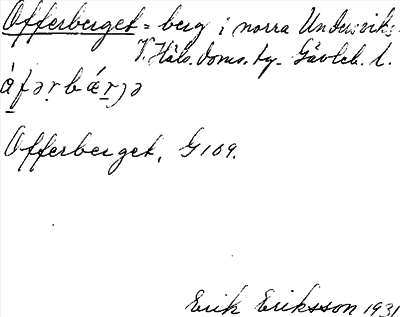 Offerberget = berg i norra Undersvik.
V. Häls. doms. ty. Gävleb. l.
å̀fərbǽrjə
Offerberget, G109.
Erik Eriksson 1931